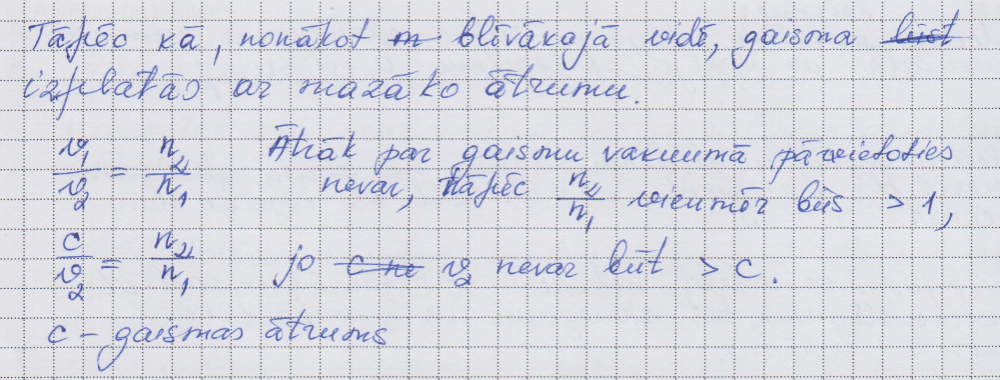 Tāpēc kā, nonākot m blīvākajā vidē, gaisma lūst
izplatās ar mazāko ātrumu.
v₁/v₂ = n₂/n₁ Ātrāk par gaismu vakuumā pārvietoties
nevar, tāpēc n₂/n₁ vienmēr būs > 1,
c/v₂ = n₂/n₁ jo c ne v₂ nevar būt > c.
c – gaismas ātrums